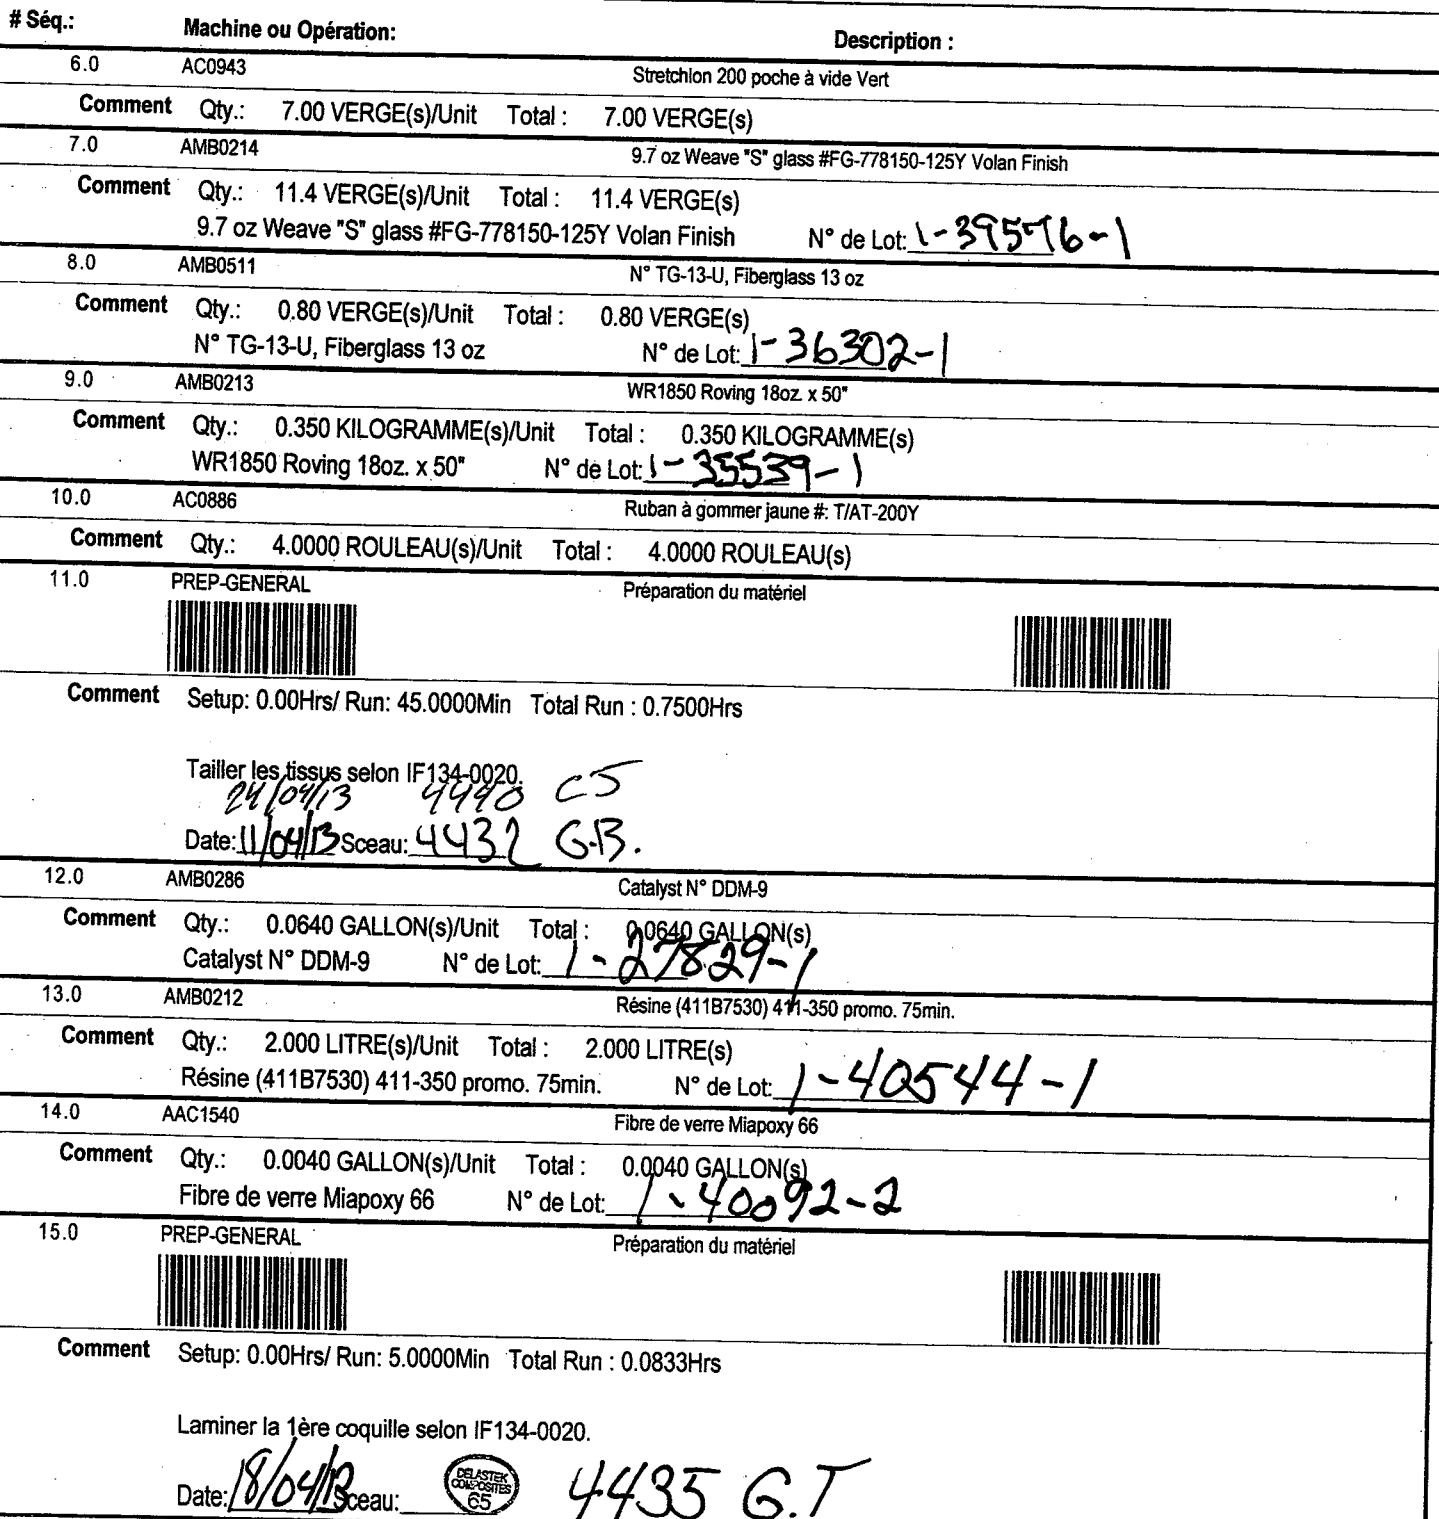 # Séq.: Machine ou Opération: Description :
6.0 AC0943 Stretchlon 200 poche à vide Vert
Comment Qty.: 7.00 VERGE(s)/Unit Total : 7.00 VERGE(s)
7.0 AMB0214 9.7 oz Weave "S" glass #FG-778150-125Y Volan Finish
Comment Qty.: 11.4 VERGE(s)/Unit Total : 11.4 VERGE(s)
9.7 oz Weave "S" glass #FG-778150-125Y Volan Finish N° de Lot: 1-39576-1
8.0 AMB0511 N° TG-13-U, Fiberglass 13 oz
Comment Qty.: 0.80 VERGE(s)/Unit Total : 0.80 VERGE(s)
N° TG-13-U, Fiberglass 13 oz N° de Lot: 1-36302-1
9.0 AMB0213 WR1850 Roving 18oz. x 50"
Comment Qty.: 0.350 KILOGRAMME(s)/Unit Total : 0.350 KILOGRAMME(s)
WR1850 Roving 18oz. x 50" N° de Lot: 1-35539-1
10.0 AC0886 Ruban à gommer jaune #: T/AT-200Y
Comment Qty.: 4.0000 ROULEAU(s)/Unit Total : 4.0000 ROULEAU(s)
11.0 PREP-GENERAL Préparation du matériel
Comment Setup: 0.00Hrs/ Run: 45.0000Min Total Run : 0.7500Hrs
Tailler les tissus selon IF134-0020.
24/04/13 4440 CS
Date: 11/04/13 Sceau: 4432 G.B.
12.0 AMB0286 Catalyst N° DDM-9
Comment Qty.: 0.0640 GALLON(s)/Unit Total : 0.0640 GALLON(s)
Catalyst N° DDM-9 N° de Lot: 1-27829-1
13.0 AMB0212 Résine (411B7530) 411-350 promo. 75min.
Comment Qty.: 2.000 LITRE(s)/Unit Total : 2.000 LITRE(s)
Résine (411B7530) 411-350 promo. 75min. N° de Lot: 1-40544-1
14.0 AAC1540 Fibre de verre Miapoxy 66
Comment Qty.: 0.0040 GALLON(s)/Unit Total : 0.0040 GALLON(s)
Fibre de verre Miapoxy 66 N° de Lot: 1-40092-2
15.0 PREP-GENERAL Préparation du matériel
Comment Setup: 0.00Hrs/ Run: 5.0000Min Total Run : 0.0833Hrs
Laminer la 1ère coquille selon IF134-0020.
Date: 18/04/13 Sceau: DELASTEK COMPOSITES 65 4435 G.T